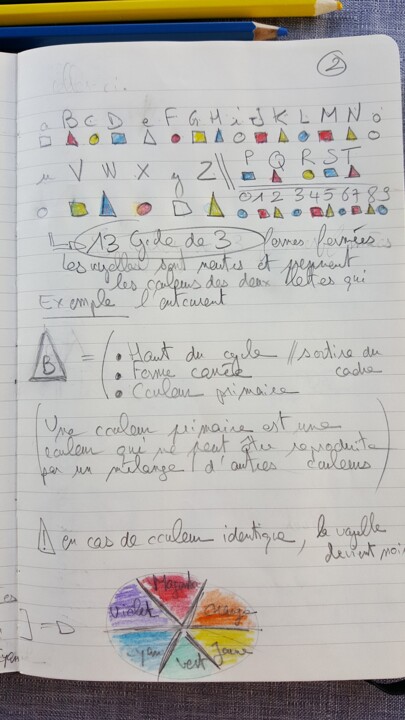 2
a B C D e F G H i J K L M N o
P Q R S T
u V W X y Z //
0 1 2 3 4 5 6 7 8 9
13 Gde de 3 formes fermées
Les voyelles sont neutes et prennent
les couleurs des deux lettes qui
Exemple l'entourent
B = ( • Haut du cycle // sortire du
• Forme carrée cadre
• Couleur primaire
(Une couleur primaire est une
couleur qui ne peut être reproduite
par un mélange d'autres couleurs)
en cas de couleur identique, la voyelle
devient noi
Magenta
Violet Orange
Cyan Jaune
vert
] = D